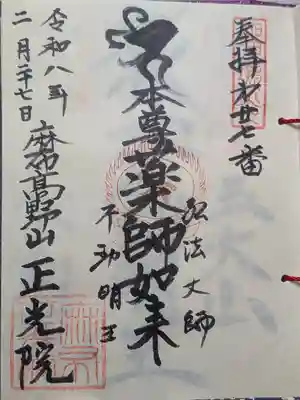 奉拝 第廿七番
弘法大師
本尊薬師如来
不動明王
麻布高野山 正光院
令和八年
二月二十七日